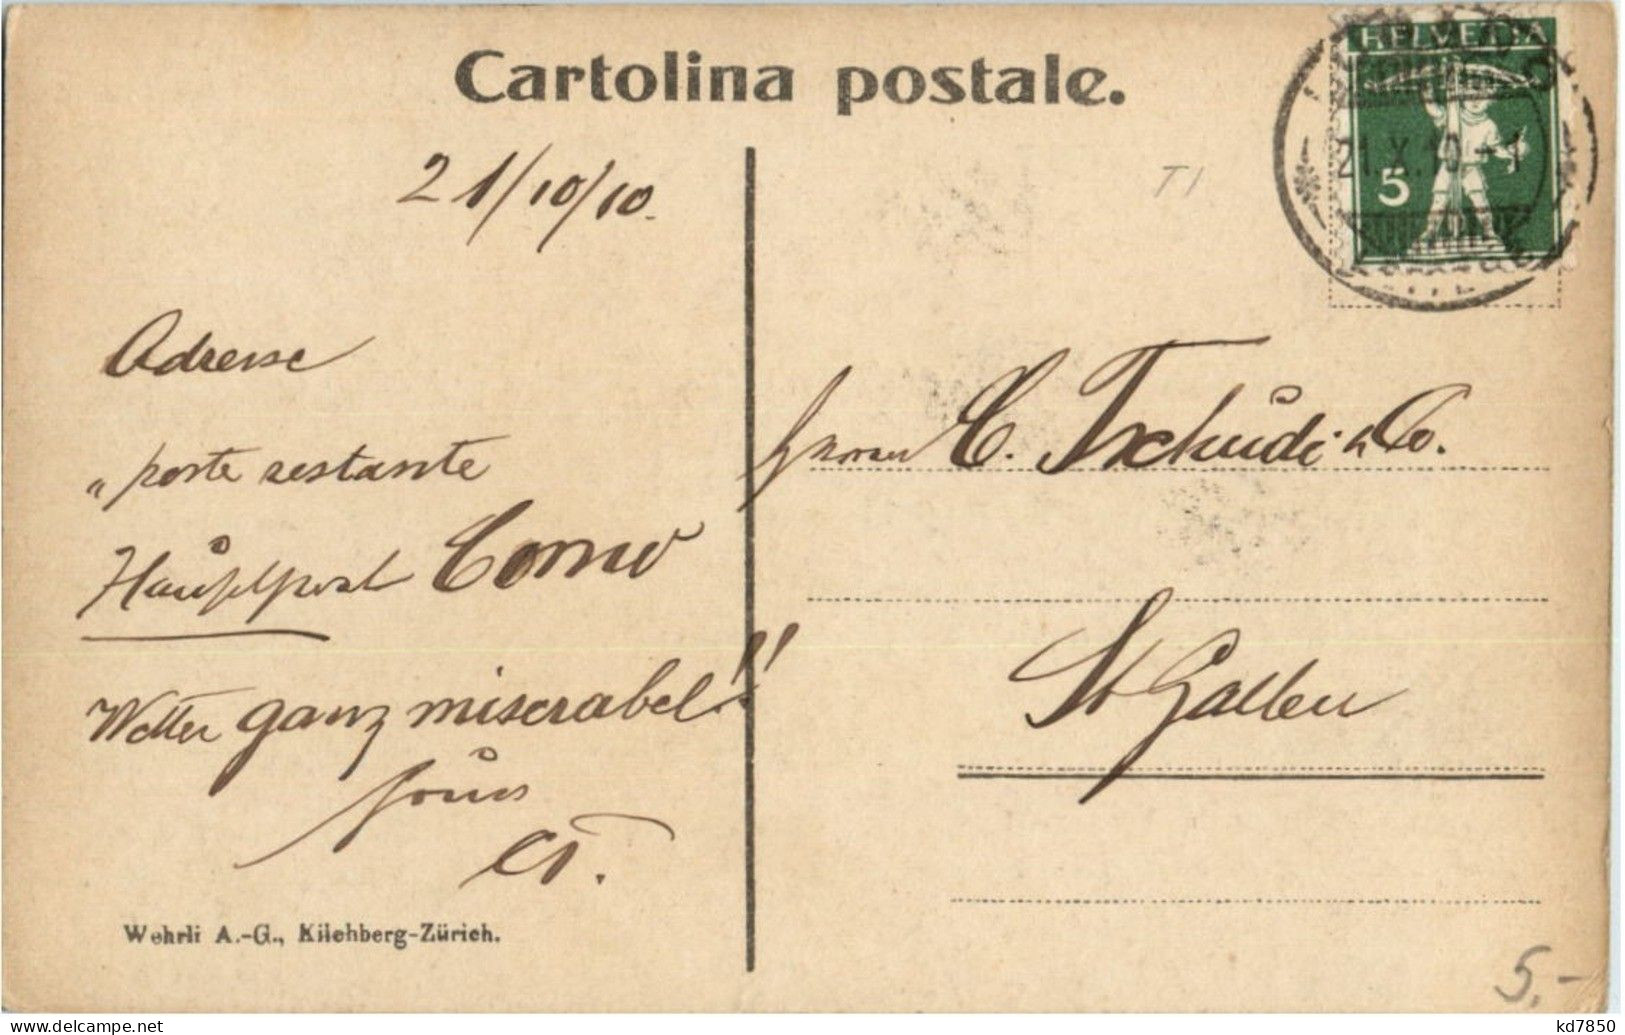 Cartolina postale.
HELVETIA
21.X.10
5
21/10/10.
TI
Adresse
„poste restante
Hauptpost Como
Wetter ganz miserabel!!
Wehrli A.-G., Kilchberg-Zürich.
Herren C. Tschudi & Co.
St Gallen
5.-
kd7850